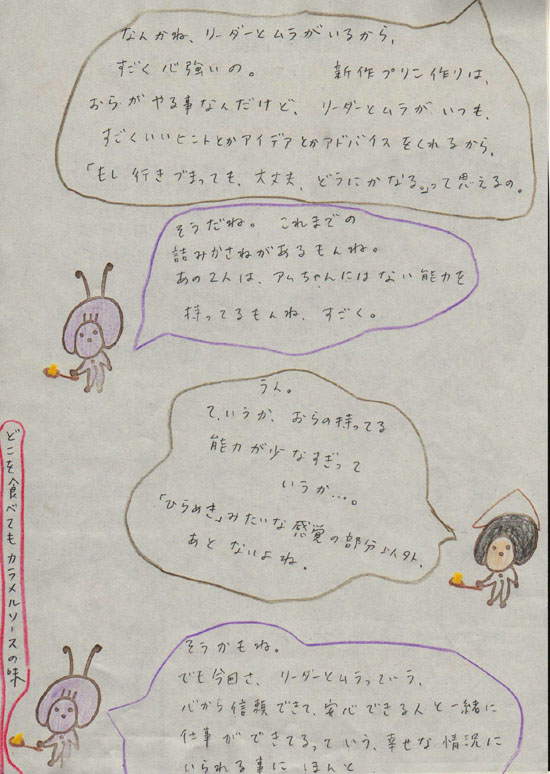 なんかね、リーダーとムラがいるから、
すごく心強いの。　新作プリン作りは、
おらがやる事なんだけど、リーダーとムラがいつも、
すごくいいヒントとかアイデアとかアドバイスをくれるから、
「もし行きづまっても、大丈夫、どうにかなる。」って思えるの。
そうだね。これまでの
詰みかさねがあるもんね。
あの2人は、アムちゃんにはない能力を
持ってるもんね、すごく。
うん。
て、いうか、おらの持ってる
能力が少なすぎって
いうか…。
「ひらめき」みたいな感覚の部分以外、
あとないよね。
どこを食べてもカラメルソースの味
そうかもね。
でも今回さ、リーダーとムラっていう、
心から信頼できて、安心できる人と一緒に
仕事ができてるっていう、幸せな情況に
いられる事にほんと